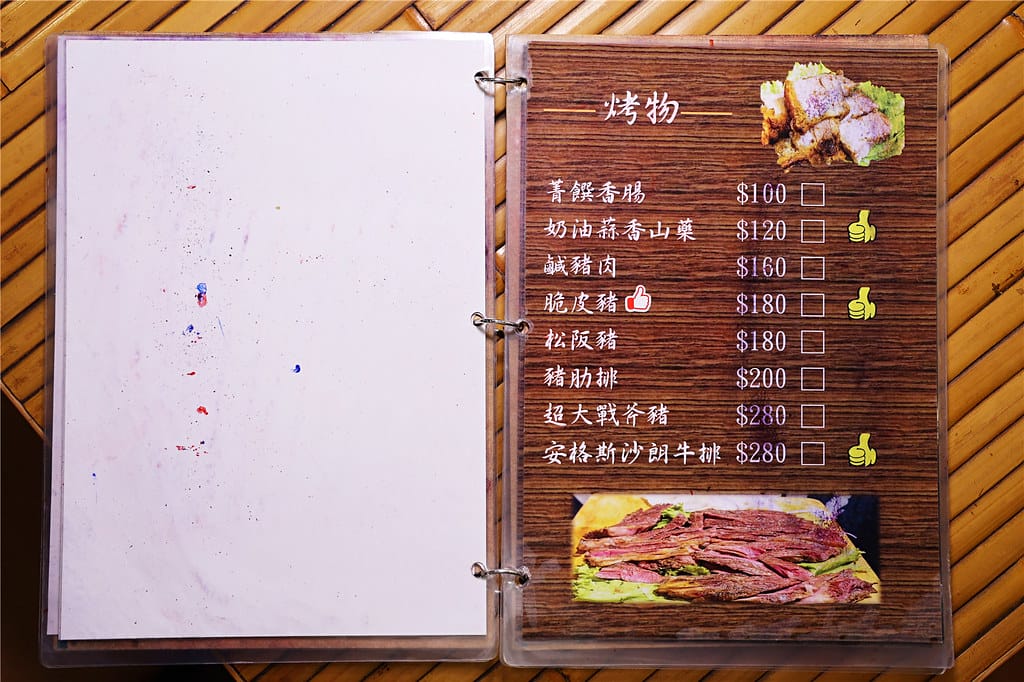 烤物
菁饌香腸 $100
奶油蒜香山藥 $120
鹹豬肉 $160
脆皮豬 $180
松阪豬 $180
豬肋排 $200
超大戰斧豬 $280
安格斯沙朗牛排 $280